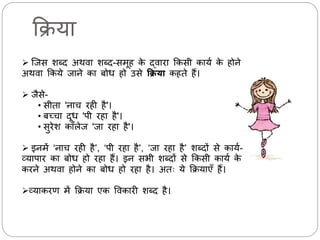 क्रिया
➢ जिस शब्द अथवा शब्द-समूह के द्वारा किसी कार्य के होने
अथवा किये जाने का बोध हो उसे क्रिया कहते हैं।
➢ जैसे-
• सीता 'नाच रही है'।
• बच्चा दूध 'पी रहा है'।
• सुरेश कॉलेज 'जा रहा है'।
➢ इनमें 'नाच रही है', 'पी रहा है', 'जा रहा है' शब्दों से कार्य-
व्यापार का बोध हो रहा हैं। इन सभी शब्दों से किसी कार्य के
करने अथवा होने का बोध हो रहा है। अतः ये क्रियाएँ हैं।
➢व्याकरण में क्रिया एक विकारी शब्द है।